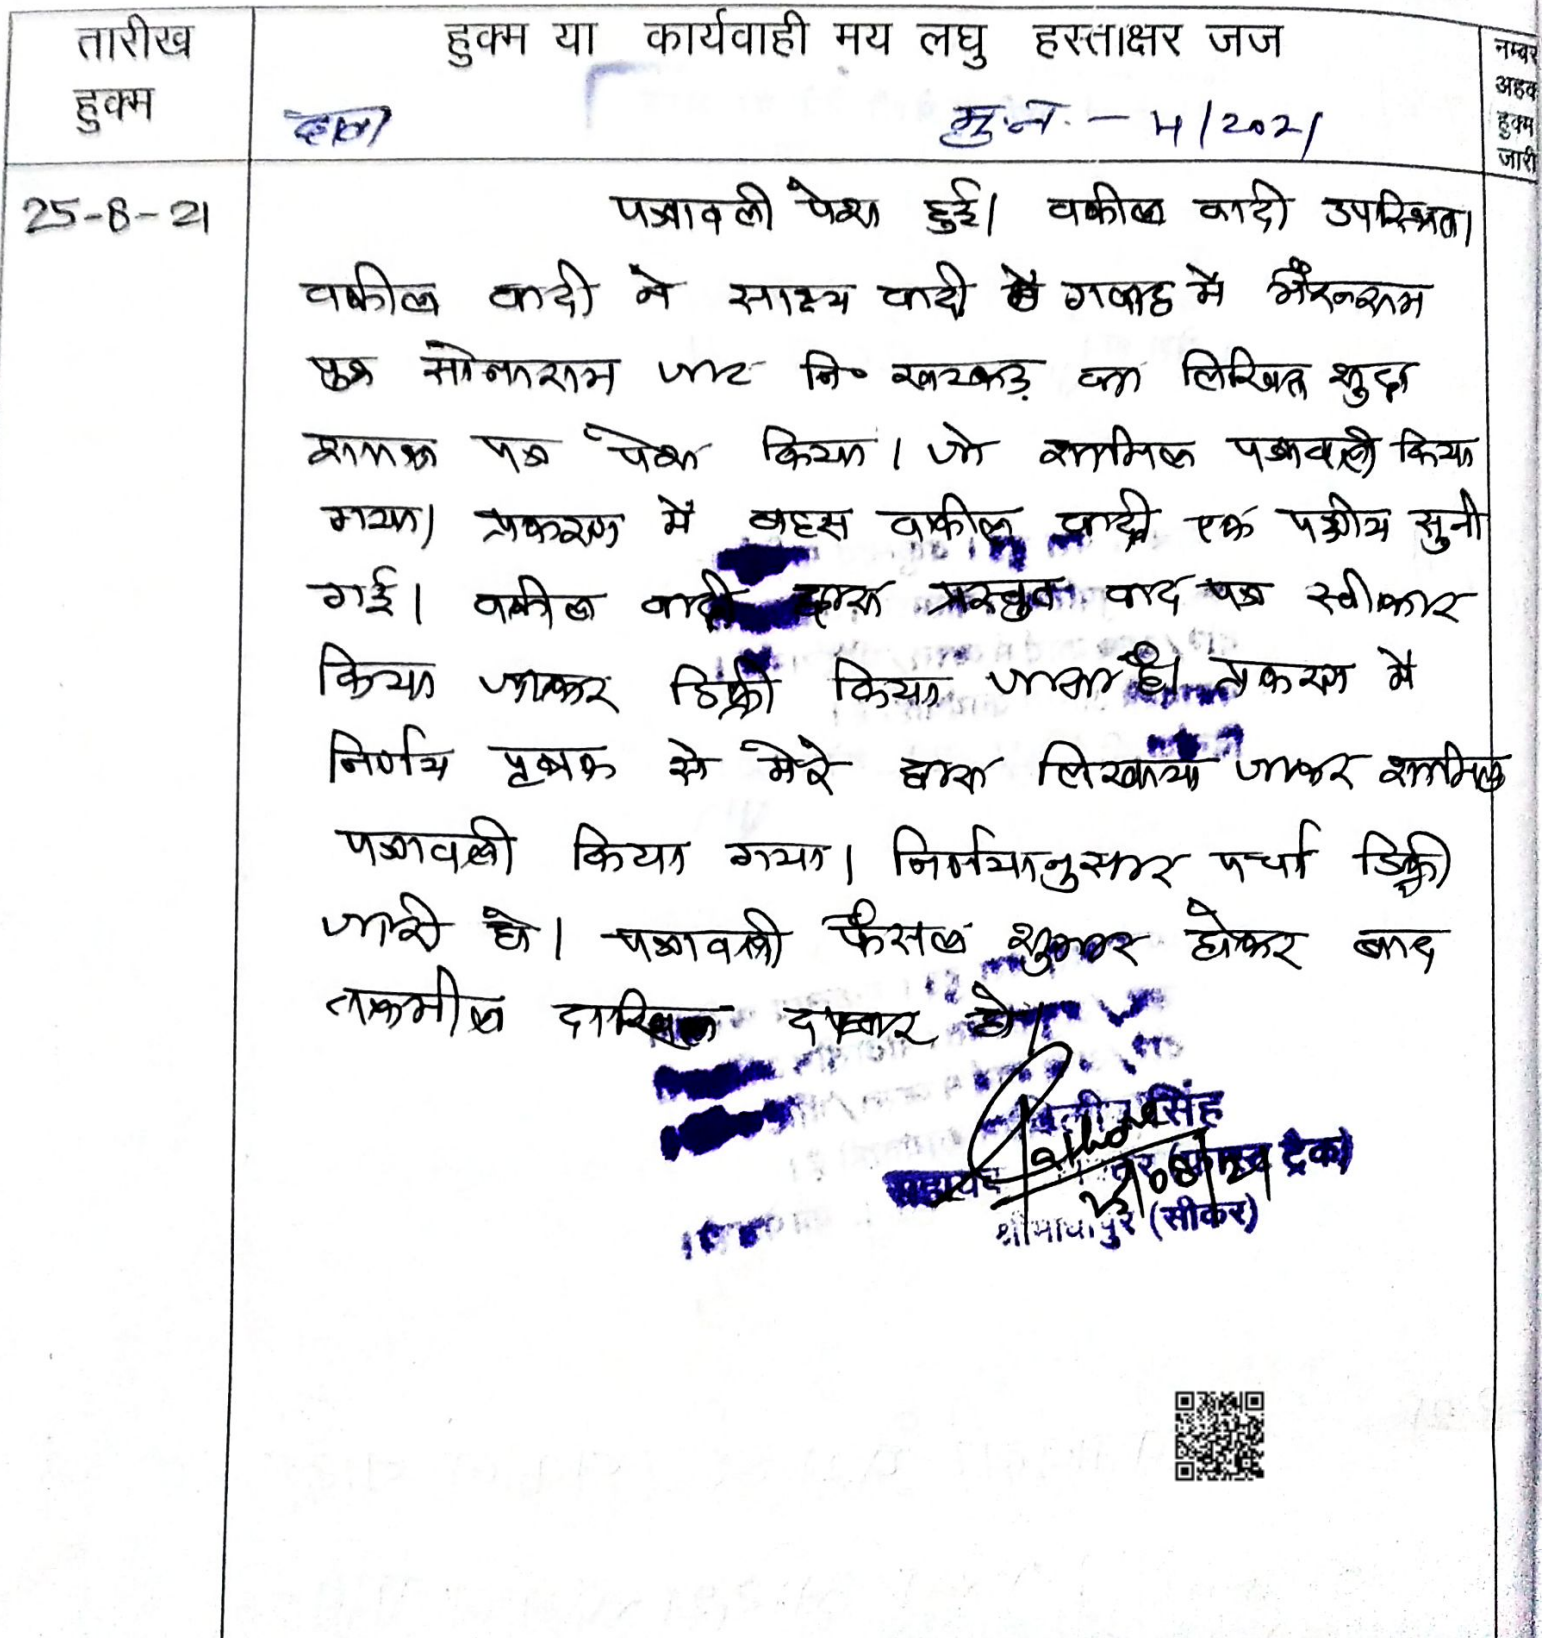 तारीख हुक्म या कार्यवाही मय लघु हस्ताक्षर जज नम्बर
हुक्म अहक
हुक्म
जारी
मु.न. - 4/2021
25-8-21 पत्रावली पेश हुई। वकील वादी उपस्थित।
वकील वादी ने साक्ष्य वादी में गवाह में भैंरूराम
पुत्र सोनाराम जाट नि० का लिखित शुदा
शपथ पत्र पेश किया। जो शामिल पत्रावली किया
गया। प्रकरण में बहस वकील वादी एक पक्षीय सुनी
गई। वकील वादी द्वारा प्रस्तुत वाद पत्र स्वीकार
किया जाकर डिक्री किया जाता है। प्रकरण में
निर्णय पृथक से मेरे द्वारा लिखाया जाकर शामिल
पत्रावली किया गया। निर्णयानुसार पर्चा डिक्री
जारी हो। पत्रावली फैसल शुमार होकर बाद
तकमील दाखिल दफ्तर हो।
सिंह
ट्रैक)
श्रीमाधोपुर (सीकर)